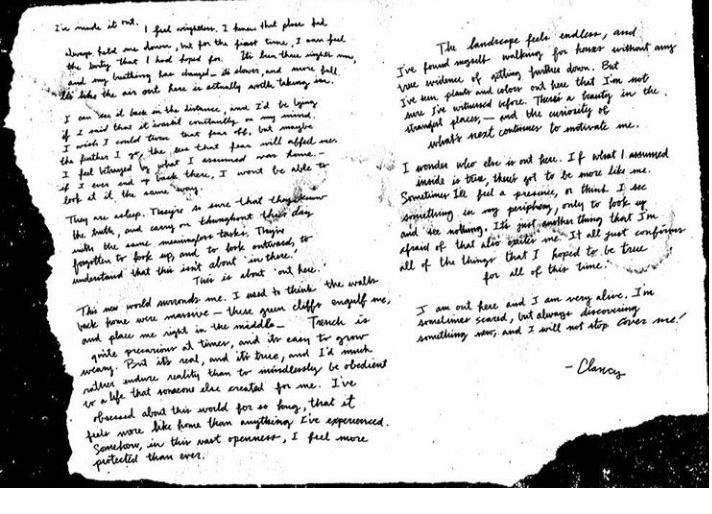 I've made it out. I feel weightless. I knew that place had
always held me down, but for the first time, I can feel
the unity that I had hoped for. It's been three nights now,
and my breathing has changed – it's slower, and more full.
It's like the air out here is actually worth taking in.
I can see it back in the distance, and I'd be lying
if I said that it wasn't constantly on my mind.
I wish I could turn that fear off, but maybe
the further I go, the less that fear will affect me.
I feel betrayed by what I assumed was home. –
if I ever end up back there, I won't be able to
look at it the same way.
They are asleep. They're so sure that they know
the truth, and carry on throughout their day
with the same meaningless tasks. They've
forgotten to look up, and to look outward, to
understand that this isn't about 'in there.'
This is about 'out here.'
This new world surrounds me. I used to think the walls
back home were massive – these green cliffs engulf me,
and place me right in the middle – Trench is
quite precarious at times, and it's easy to grow
weary. But it's real, and it's true, and I'd much
rather endure reality than to mindlessly be obedient
to a life that someone else created for me. I've
obsessed about this world for so long, that it
feels more like home than anything I've experienced.
Somehow, in this vast openness, I feel more
protected than ever.
The landscape feels endless, and
I've found myself walking for hours without any
true evidence of getting further down. But
I've seen plants and colors out here that I'm not
sure I've witnessed before. There's a beauty in the
strangest places, – and the curiosity of
what's next continues to motivate me.
I wonder who else is out here. If what I assumed
inside is true, there's got to be more like me.
Sometimes I'll feel a presence, or think I see
something in my periphery, only to look up
and see nothing. It's just another thing that I'm
afraid of that also excites me. It all just confirms
all of the things that I hoped to be true
for all of this time.
I am out here and I am very alive. I'm
sometimes scared, but always discovering
something new, and I will not stop cover me!
– Clancy